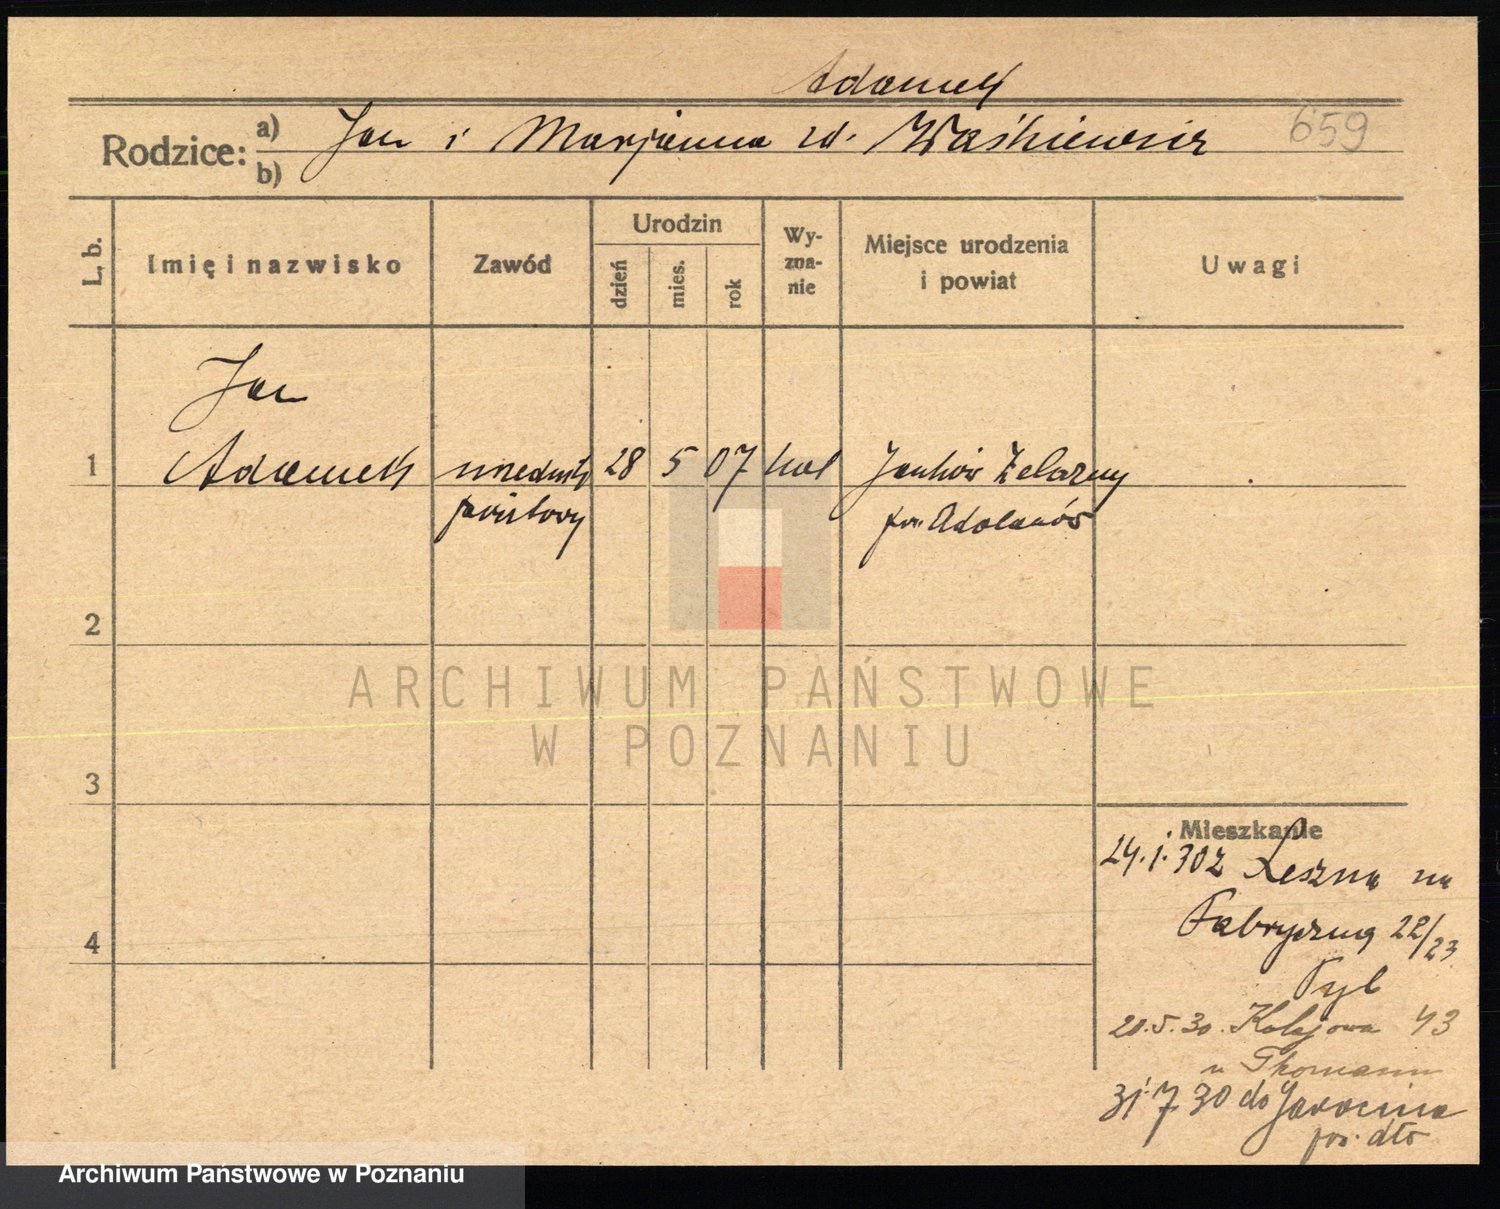 Adamek
Rodzice: a) b) Jan i Marjanna zd. Waśkiewicz 659
L. b. Imię i nazwisko Zawód Urodzin dzień mies. rok Wyznanie Miejsce urodzenia i powiat Uwagi
Jan
1 Adamek urzednik 28 5 07 kat Janków Zelazny
pow. Adolanów
2
ARCHIWUM PAŃSTWOWE
W POZNANIU
3
Mieszkanie
24.1.30 z Leszna na
Fabryczną 22/23
20.5.30. Kolejowa 43
u Thomann
31.7.30 do Jarocina
pow. dto
4
Archiwum Państwowe w Poznaniu